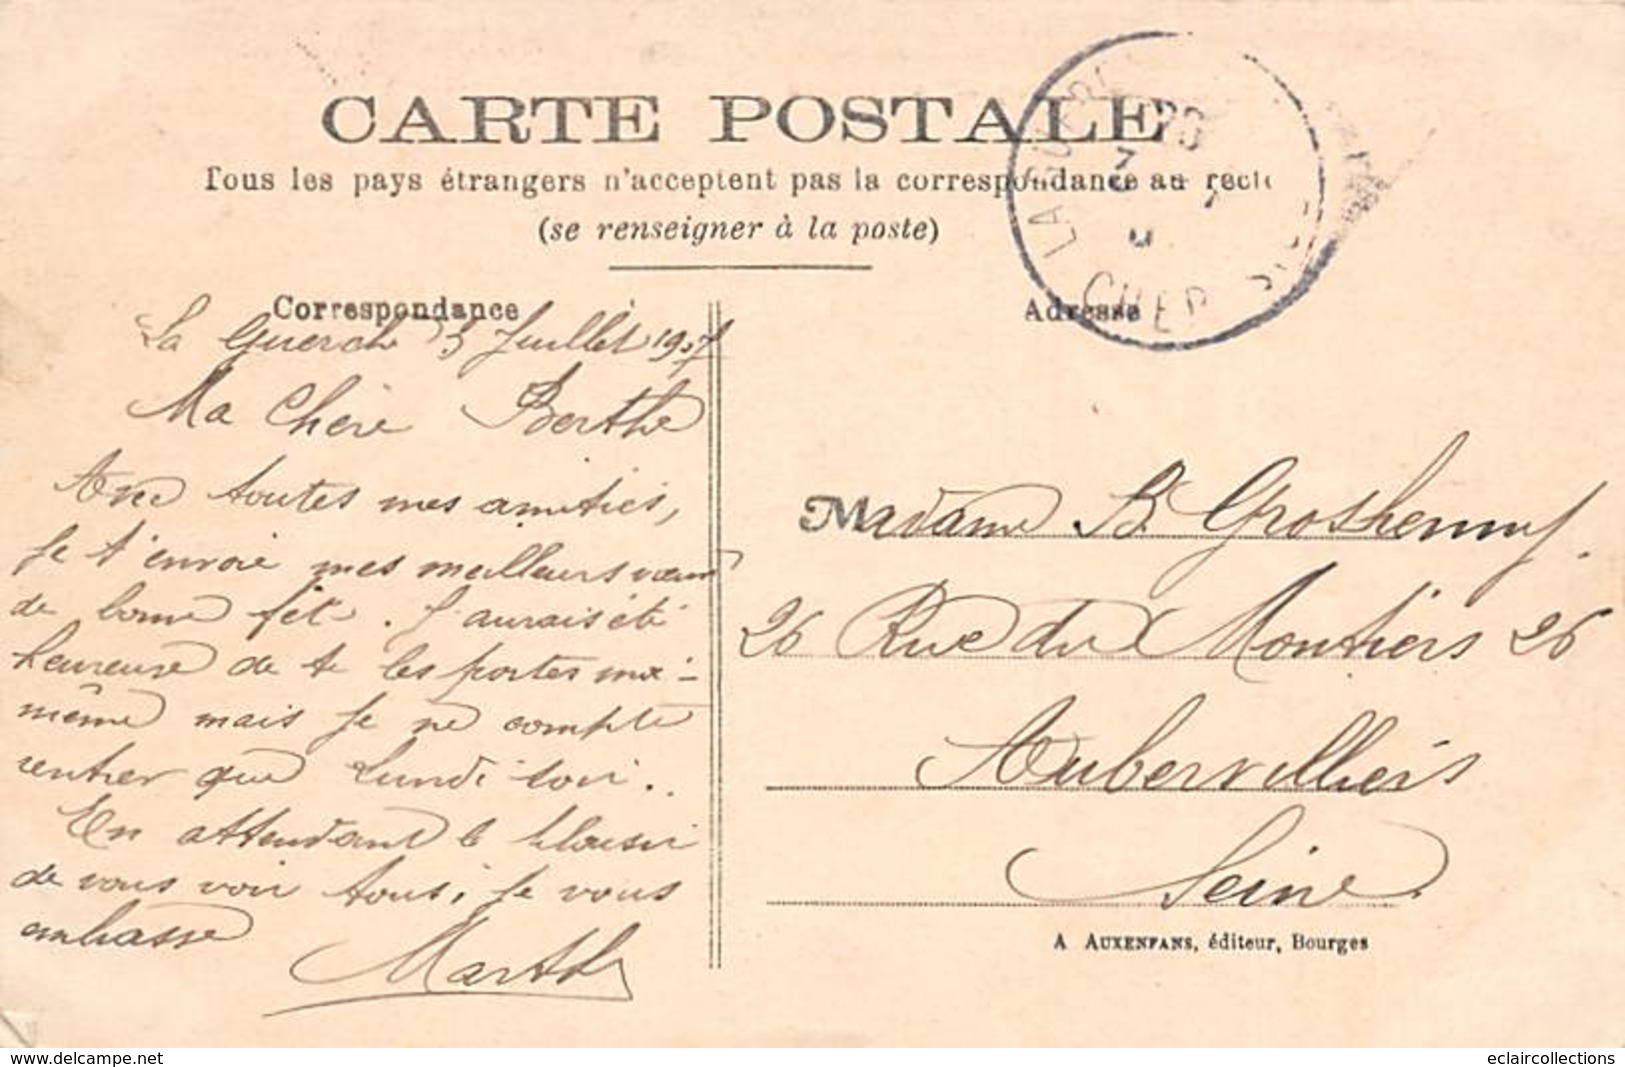 CARTE POSTALE
Tous les pays étrangers n'acceptent pas la correspondance au recto
(se renseigner à la poste)
Correspondance
Adresse
LA GUERCHE
CHER
La Guerche 5 Juillet 1907
Ma Chère Berthe
Avec toutes mes amitiés,
je t'envoie mes meilleurs vœux
de bonne fête. J'aurais été
heureuse de te les portes moi-
même mais je ne compte
rentrer que Lundi soir..
En attendant le plaisir
de vous voir tous, je vous
embrasse
Marthe
Madame B. Groshenny.
26 Rue du Moutiers 26
Aubervilliers
Seine
A AUXENFANS, éditeur, Bourges
www.delcampe.net
eclaircollections